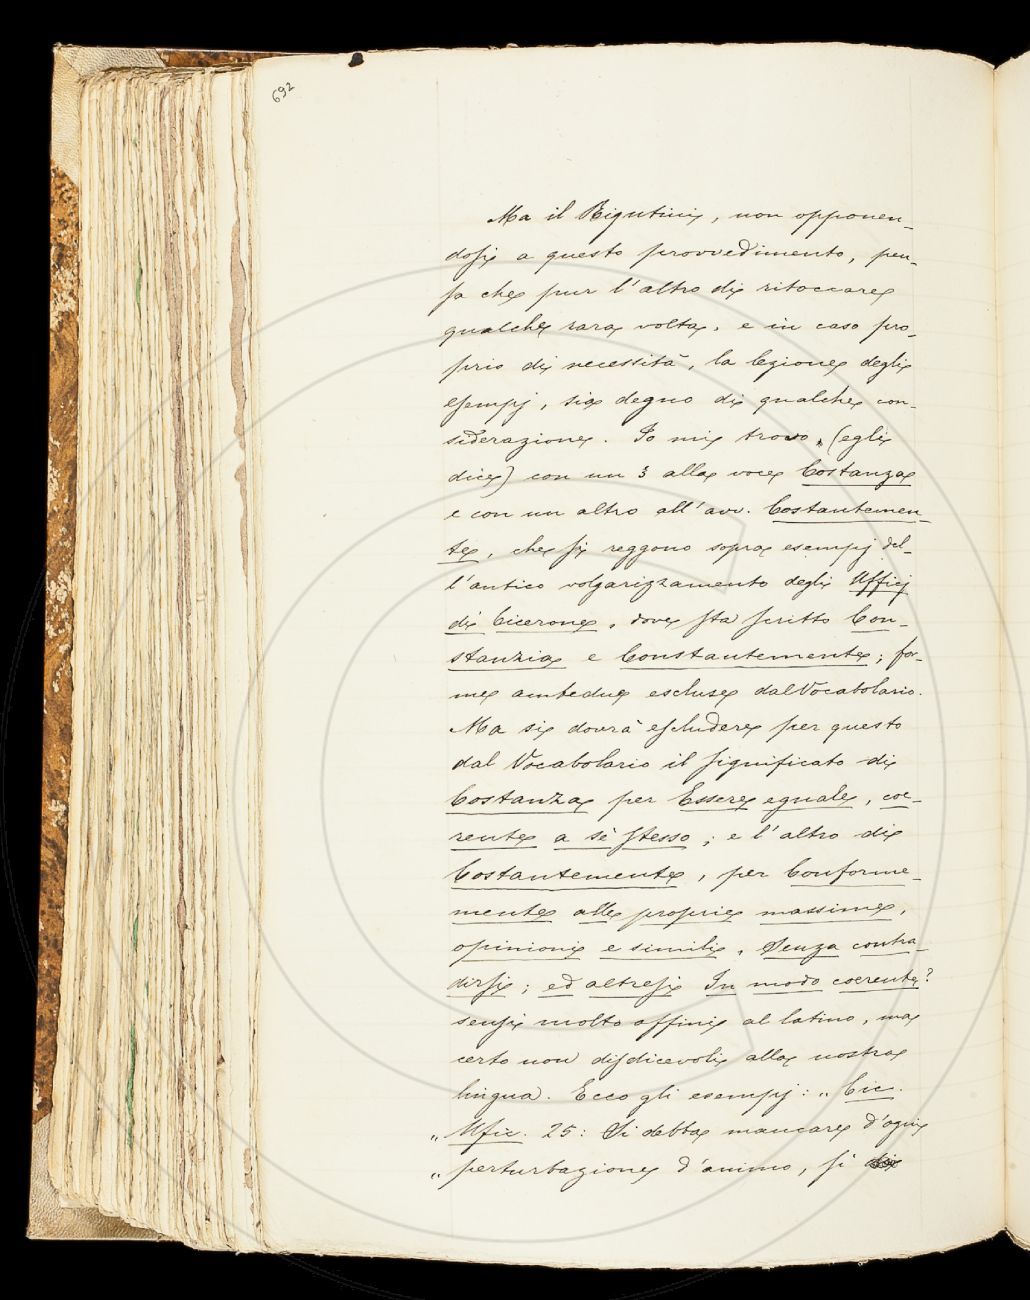 692
Ma il Rigutini, non opponen-
dosi a questo provvedimento, pen-
sa che pur l'altro di ritoccare
qualche rara volta, e in caso pro-
prio di necessità, la lezione degli
esempj, sia degno di qualche con-
siderazione. Io mi trovo „ (egli
dice) con un 3 alla voce Costanza
e con un altro all'avv. Costantemen-
te, che si reggono sopra esempj del-
l'antico volgarizzamento degli Ufficj
di Cicerone, dove sta scritto Con-
stanzia e Constantemente; for-
me ambedue escluse dal Vocabolario.
Ma si dovrà escludere per questo
dal Vocabolario il significato di
Costanza per Essere eguale, coe-
rente a sè stesso; e l'altro di
Costantemente, per Conforme-
mente alle proprie massime,
opinioni e simili, Senza contra-
dirsi; ed altresì In modo coerente?
sensi molto affini al latino, ma
certo non disdicevoli alla nostra
lingua. Ecco gli esempj: „ Cic.
„ Ufic. 25: Si debba mancare d'ogni
„ perturbazione d'animo, sì